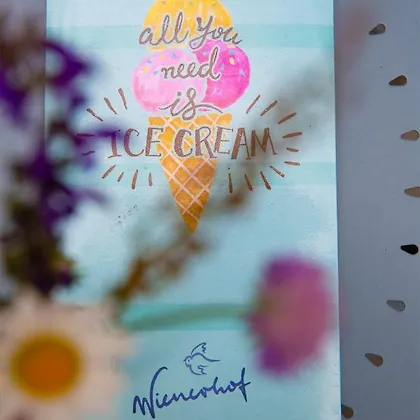 all You
need
is
ICE CREAM
Wienerhof